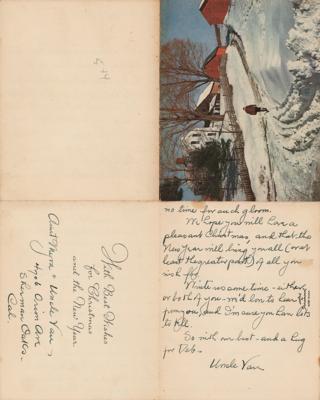 no time for such gloom.
We hope you will have a
pleasant Christmas, and that the
New Year will bring you all (or at
least the greatest part) of all you
wish for.
Write us some time - either
or both of you. We'd love to hear
from you, and I'm sure you have lots
to tell.
So with our best - and a hug
for Deb.
Uncle Van
With Best Wishes
for Christmas
and the New Year
Aunt Myra & Uncle Van
Orion Ave
Sherman Oaks.
Cal.